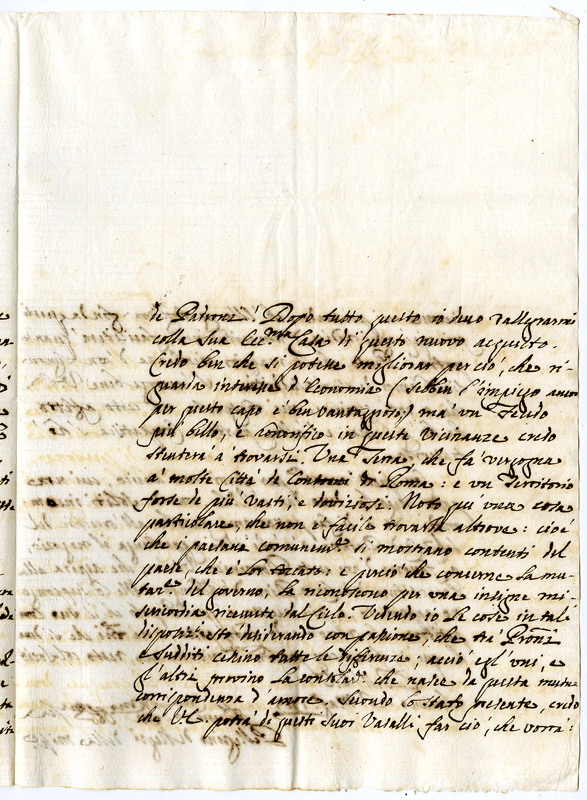 di Padroni. Dopo tutto questo io devo rallegrarmi
colla Sua Ecc.ma Casa di questo nuovo acquisto.
Credo ben che si potesse migliorar per ciò, che ri-
guarda interesse d'Economia (sebben l'impiego ancor
per questo capo è ben vantaggioso) mà un Feudo
più bello, e honorifico in queste vicinanze credo
stentarà à trovarsi. Una Terra, che fà vergogna
à molte Città de Contorni di Roma: e un Territorio
forse de più vasti, e doviziosi. Noto qui una cosa
particolare, che non è facile trovarla altrove: cioè
che i paesani comunem.te si mostrano contenti del
paese, che è lor toccato: e perciò che concerne la mu-
taz.e del governo, la riconoscono per una insigne mi-
sericordia ricevuta dal Cielo. Vedendo io le cose in tal
disposiz.e stò desiderando con passione, che trà Proni
e sudditi cessino tutte le differenze; acciò egl'uni, e
gl'altri provino la consolaz.e che nasce da questa mutua
corrispondenza d'amore. Secondo lo stato presente, credo
che V.E. potrà di questi suoi Vasalli far ciò, che vorrà: